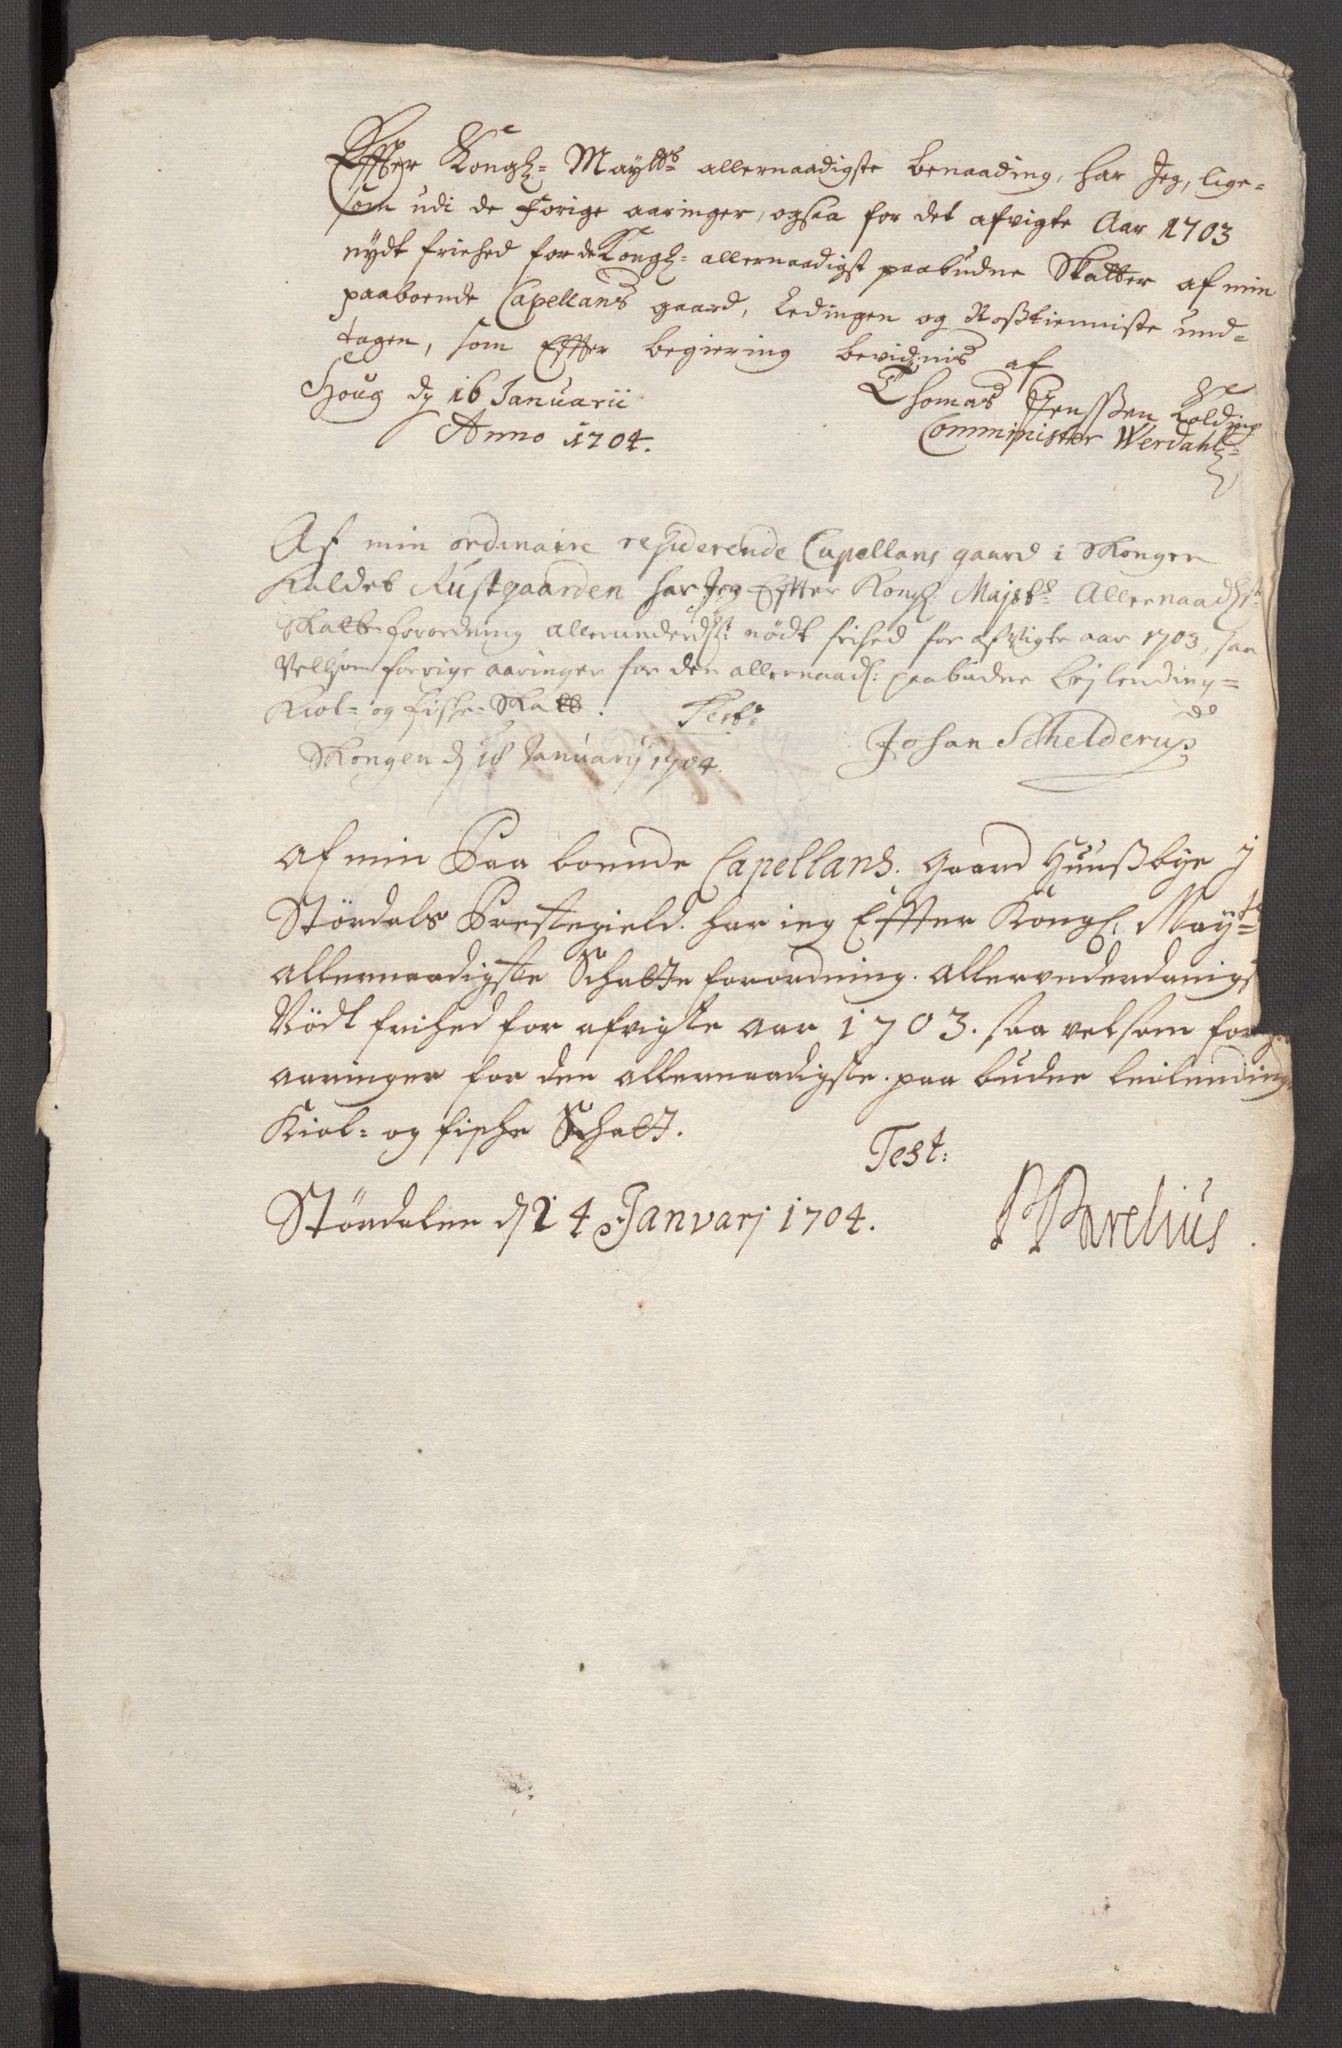 Effter Kongl= Maytts allernaadigste benaading, har Jeg, lige=
som udi de forige aaringer, ogsaa for det afvigte Aar 1703
nydt friehed for de Kongl= allernaadigst paabudne Skatter af min
paaboende Capellans gaard, Ledingen og Rosstienniste und=
tagen, som Effter begiering bevidnis af
Houg dy 16 Januarii Thomas Jenssen Kolding
Anno 1704. Comminister Werdahl=
Af min ordinaire residerende Capellans gaard i Skongen
Kaldet Rustgaarden har Jeg Effter Kongl. Majsts Allernaadst
Skatt forordning allerunderdst nödt frihed for afvigte aar 1703, saa
Velsom forrige aaringer for den allernaadl: paabudne leylending=
Kiol= og fische= Skatt. Test:
Skongen d 18 January 1704. Johan Schelderup
Af min Paa boende Capellans. Gaard Huussbye J
Stördals Prestegield. har ieg Effter Kongl. Mayts
Allernaadigste Schatte forordning. allervnderdanigs
Nödt frihed for afvigte aar 1703. saa velsom for
aaringer for den allernaadigste. paa budne leilending
Kiol= og fische Schatt. Test:
Stördalen d 24 Janvarj 1704. Arelius.